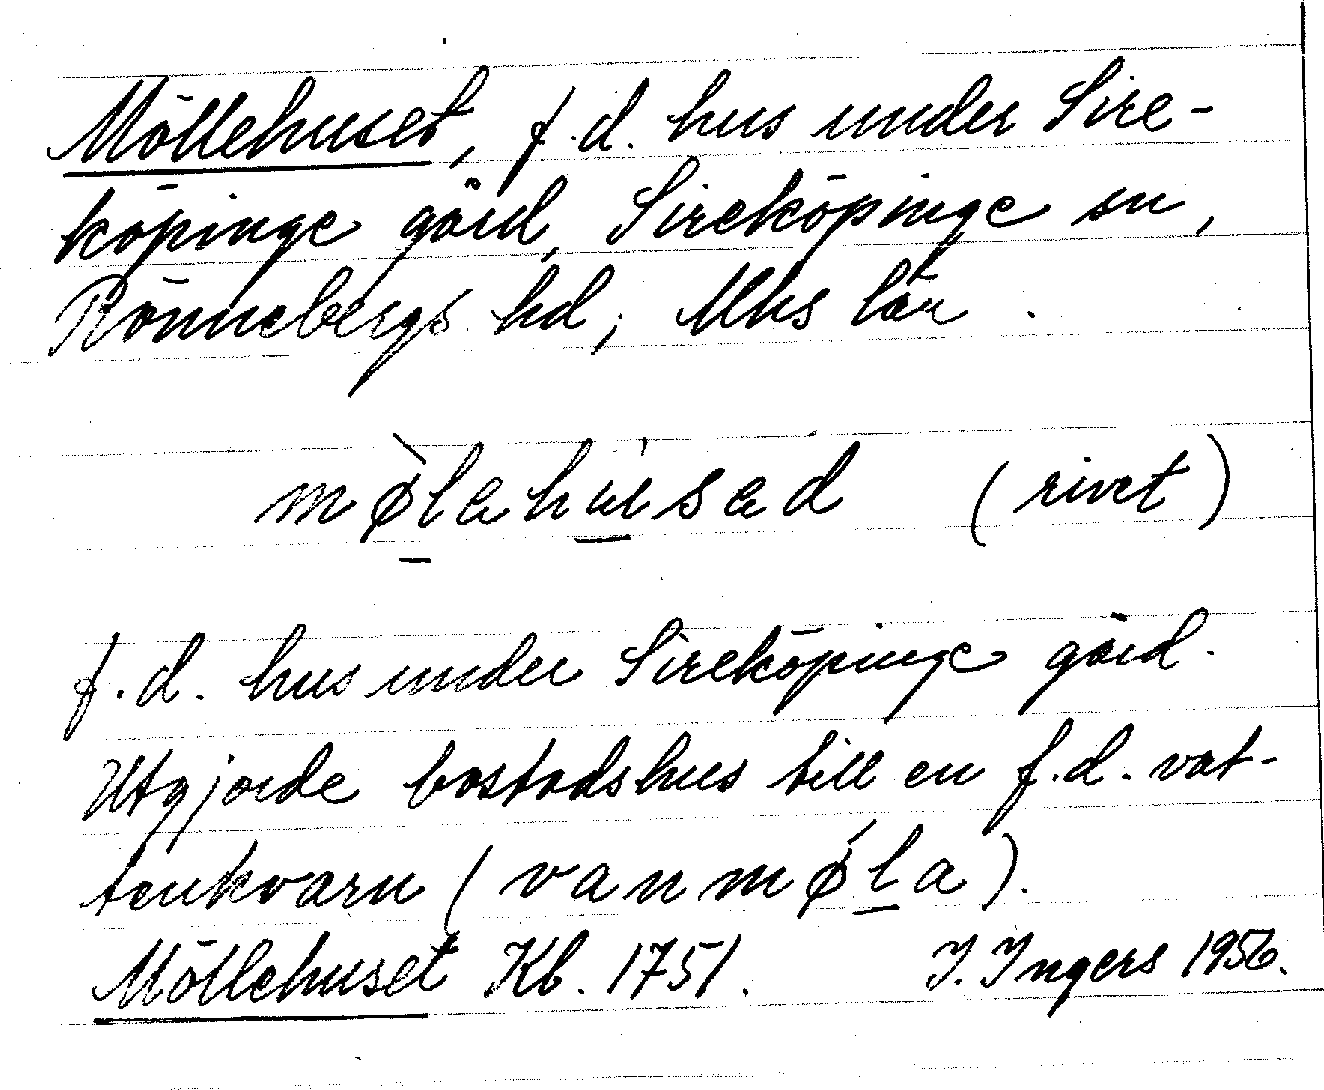 Möllehuset, f.d. hus under Sire-
köpinge gård, Sireköpinge sn,
Rönnebergs hd, Mhs län.
mø̀lahúsad (rivet)
f.d. hus under Sireköpinge gård.
Utgjorde bostadshus till en f.d. vat-
tenkvarn (vanmǿla).
Möllehuset Kb. 1751. I. Ingers 1956.